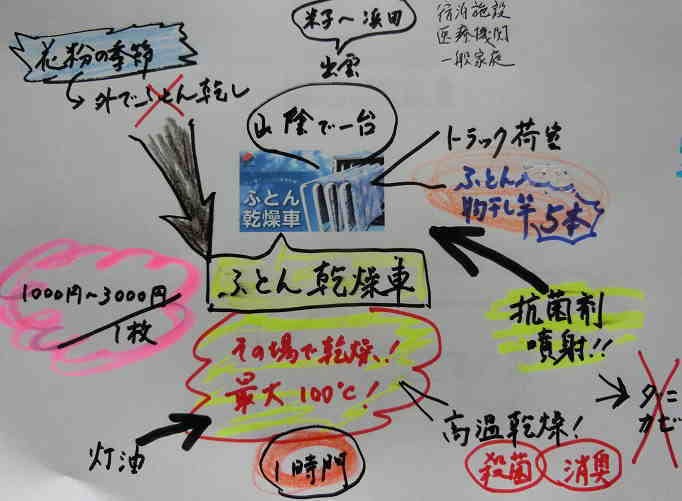 花粉の季節
外でふとん乾し
米子〜浜田
出雲
宿泊施設
医療機関
一般家庭
山陰で一台
ふとん
乾燥車
トラック荷室
ふとん
物干し竿
5本
ふとん乾燥車
1000円〜3000円
1枚
その場で乾燥!
最大100℃!
抗菌剤
噴射!!
灯油
1時間
高温乾燥!
殺菌
消臭
ダニ
カビ